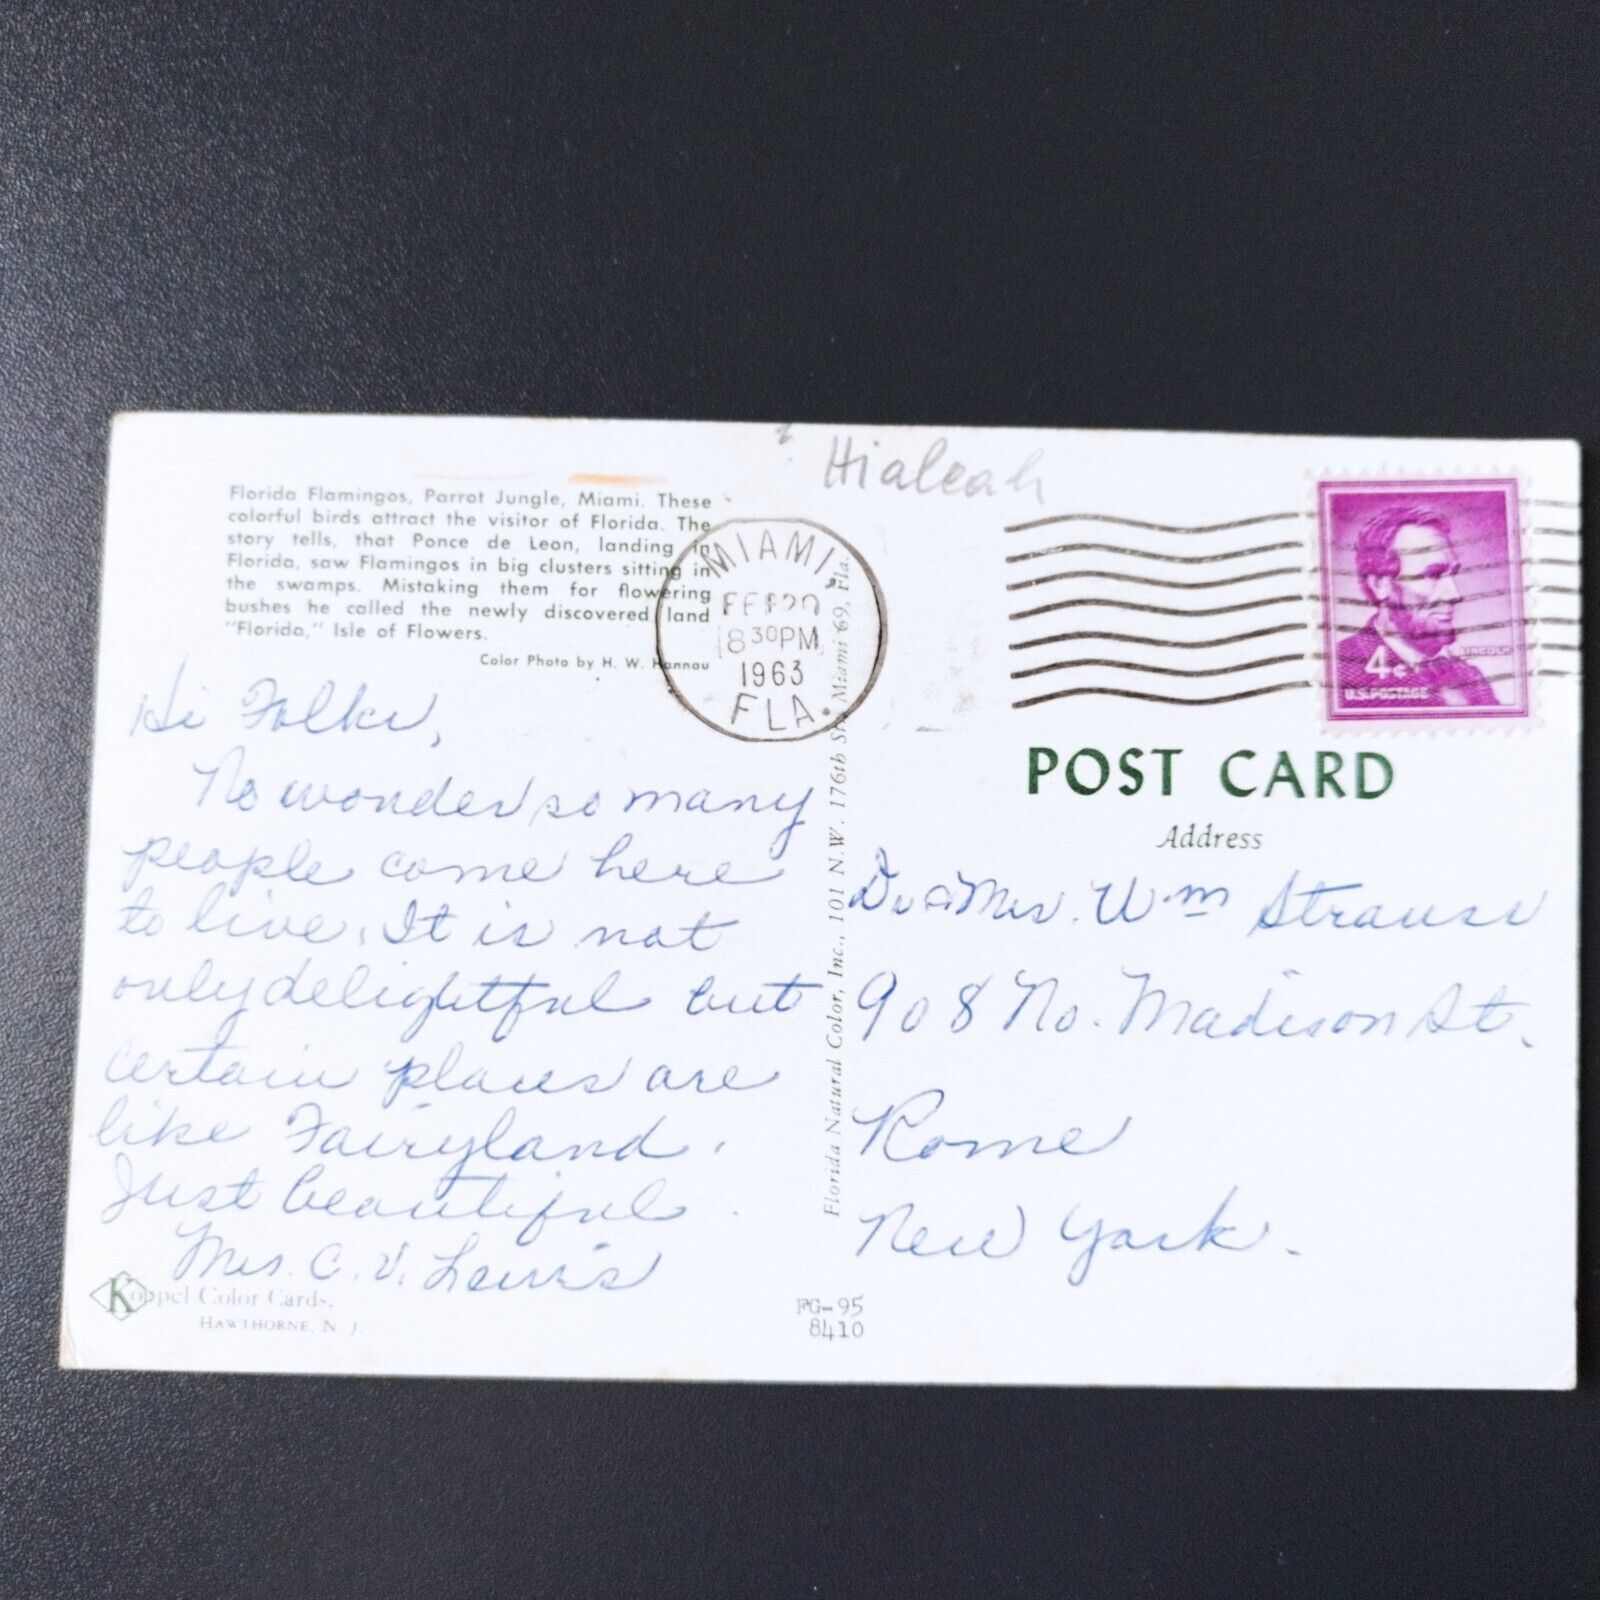 Hialeah
Florida Flamingos, Parrot Jungle, Miami. These
colorful birds attract the visitor of Florida. The
story tells, that Ponce de Leon, landing in
Florida, saw Flamingos in big clusters sitting in
the swamps. Mistaking them for flowering
bushes he called the newly discovered land
"Florida," Isle of Flowers.
Color Photo by H. W. Hannau
MIAMI,
FEB 20
8 30 PM
1963
FLA.
LINCOLN
4¢
U.S. POSTAGE
Hi Folks,
No wonder so many
people come here
to live. It is not
only delightful but
certain places are
like Fairyland.
Just beautiful.
Mrs. C. V. Lewis
Koppel Color Cards.
HAWTHORNE, N. J.
Florida Natural Color, Inc., 101 N.W. 176th St., Miami 69, Fla.
FG-95
8410
POST CARD
Address
Dr & Mrs. Wm Strauss
908 No. Madison St.
Rome
New York.